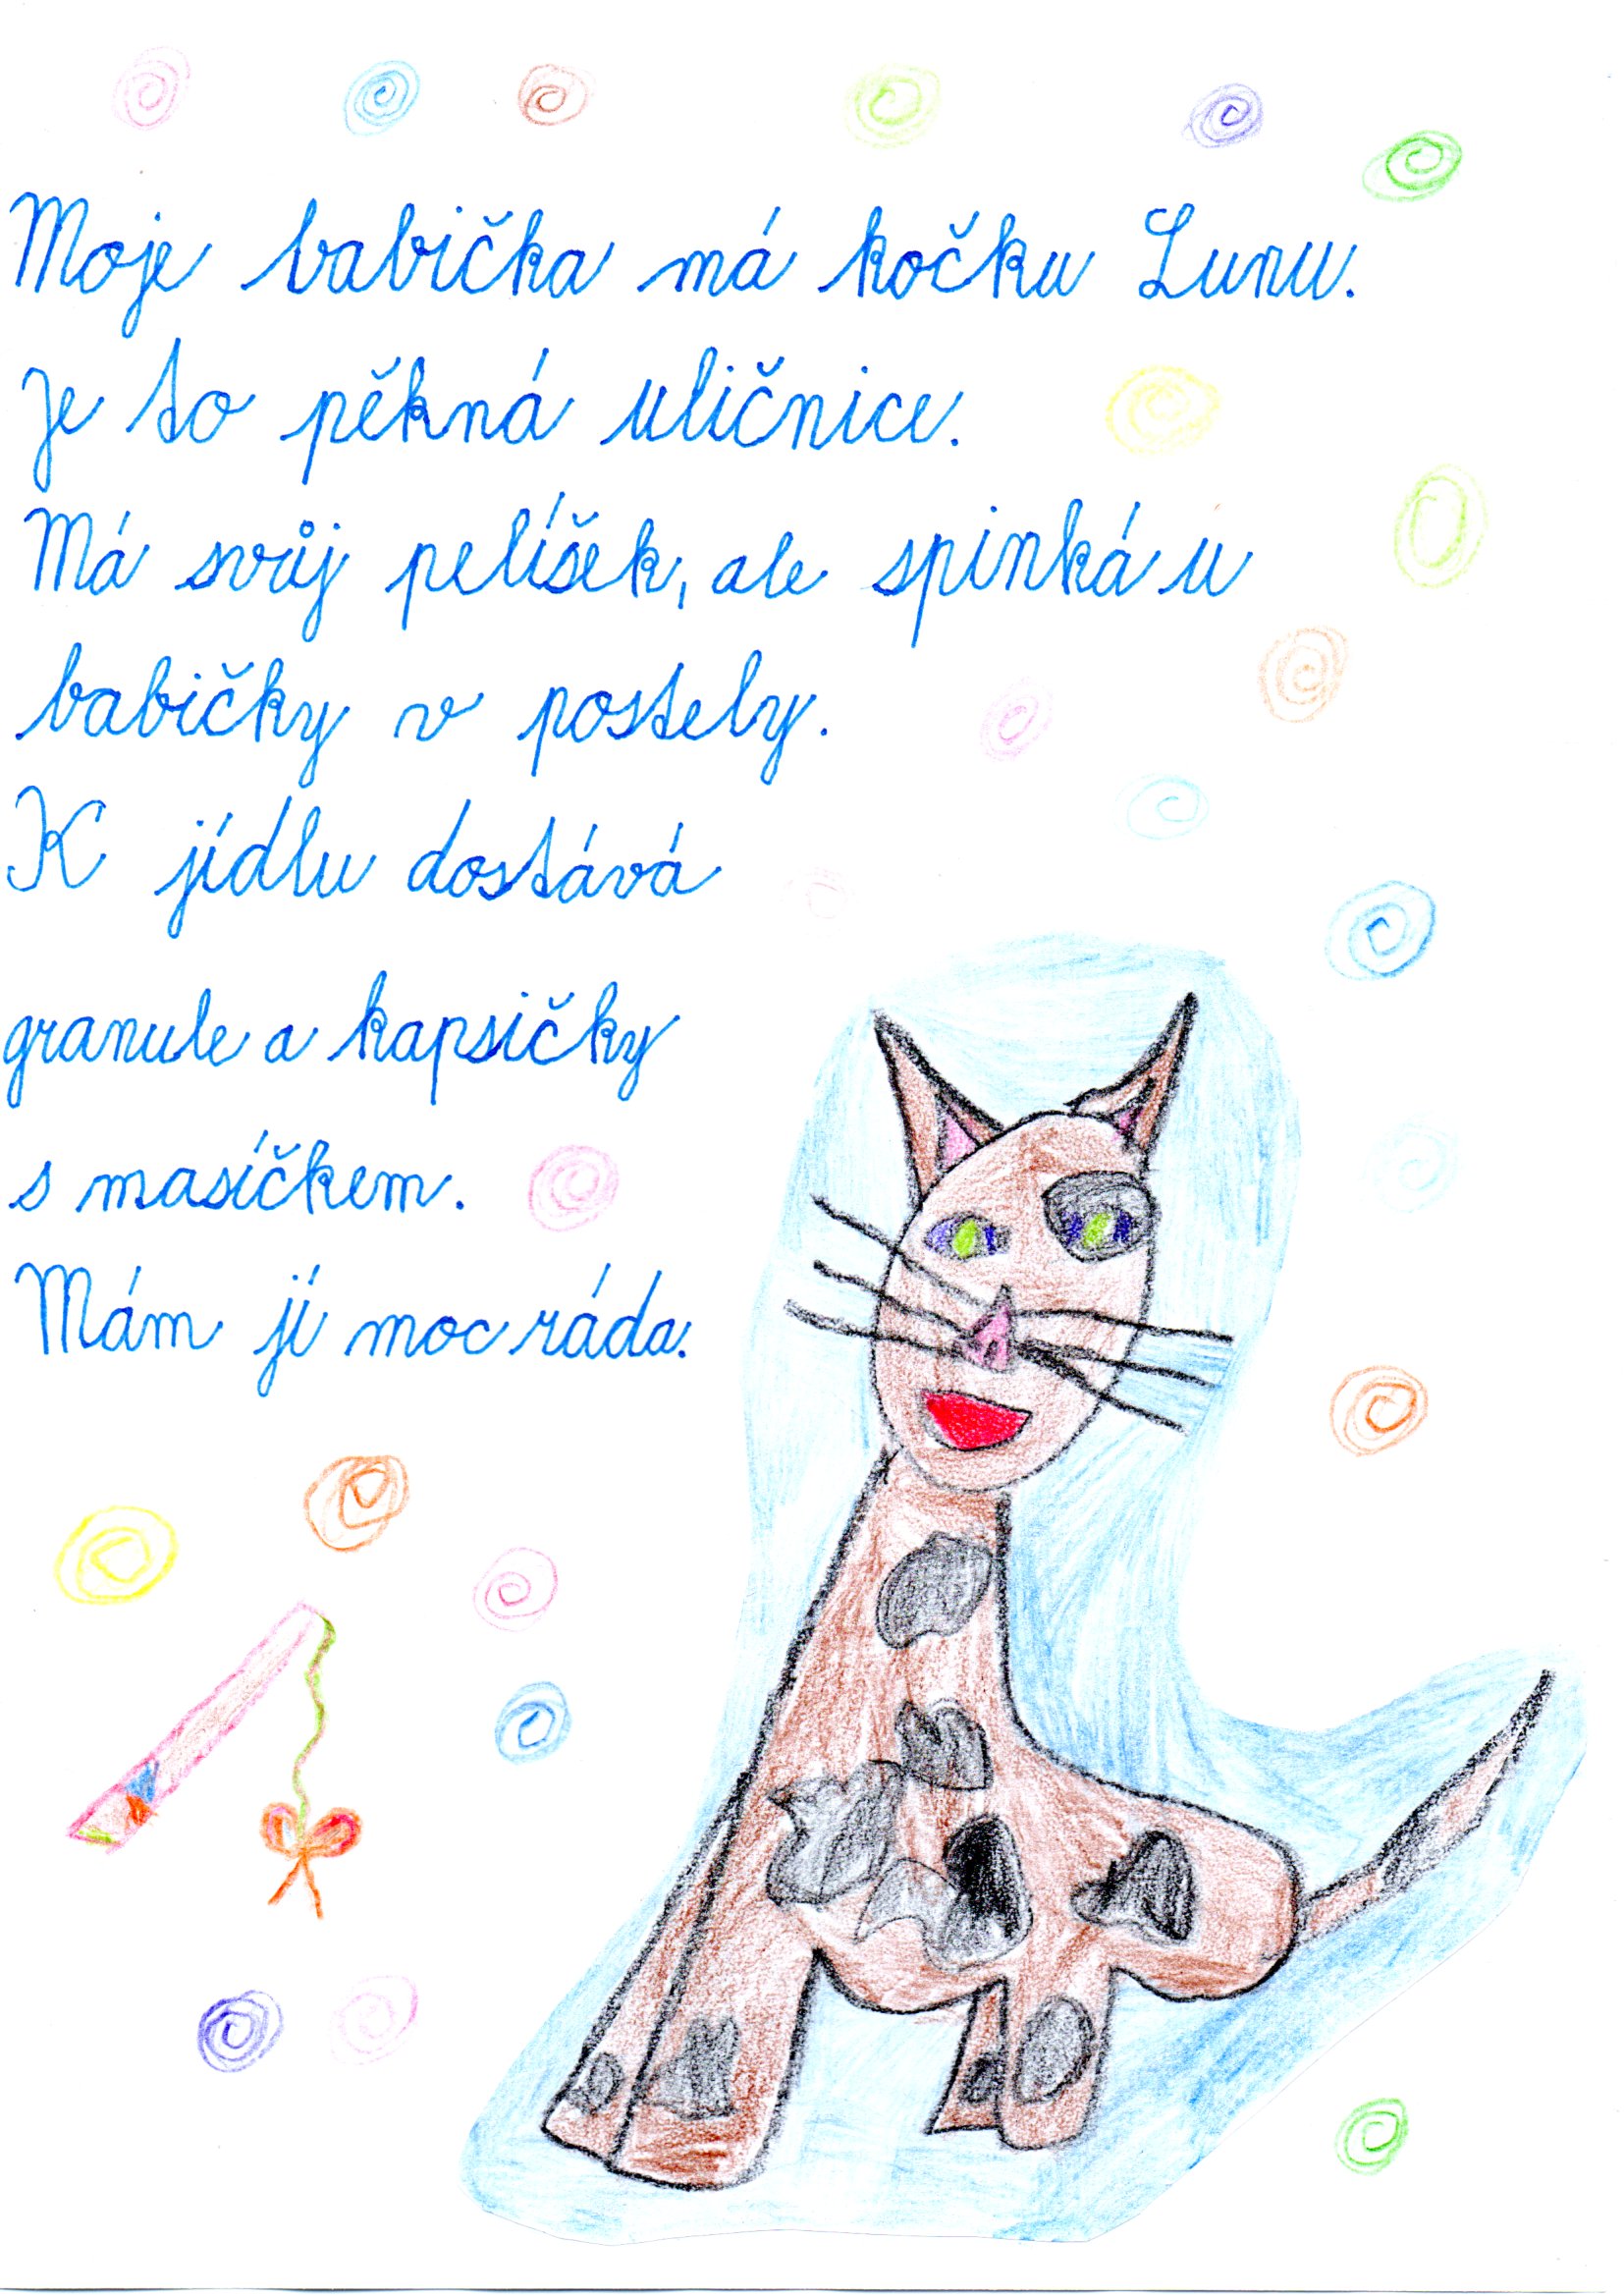 Moje babička má kočku Lunu.
Je to pěkná uličnice.
Má svůj pelíšek, ale spinká u
babičky v postely.
K jídlu dostává
granule a kapsičky
s masíčkem.
Mám jí moc ráda.